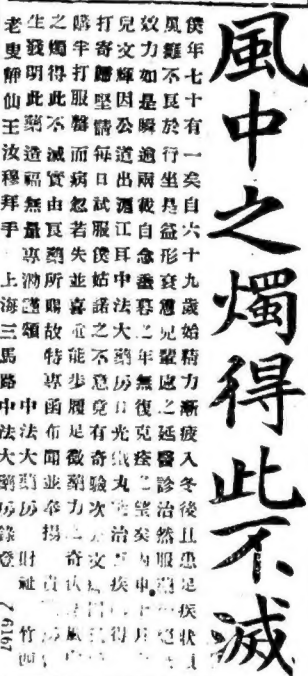 風中之燭得此不滅
僕年七十有一矣自六十九歲始精力漸疲入冬後且患足疾狀
風難不良於行坐是益形衰憊兒輩慮之延醫診治然服藥
效力如是瞬逾兩載自念衰暮之年無復克痊之望矣
兒文輝因公道出滬江耳中法大藥房日光丸治疾
打寄歸堅請每日試服僕姑諾之不意竟有奇驗次
瞬半打服罄而病忽若失並喜能步履足徵藥力之奇
之燭得此不滅實由良藥所賜故特專函布聞並奉揚
生發明此藥造福無量專泐謹頌 中法大藥房 財祉 竹
老叟靜仙王汝穆拜手 上海三馬路中法大藥房錄登
Z 6167